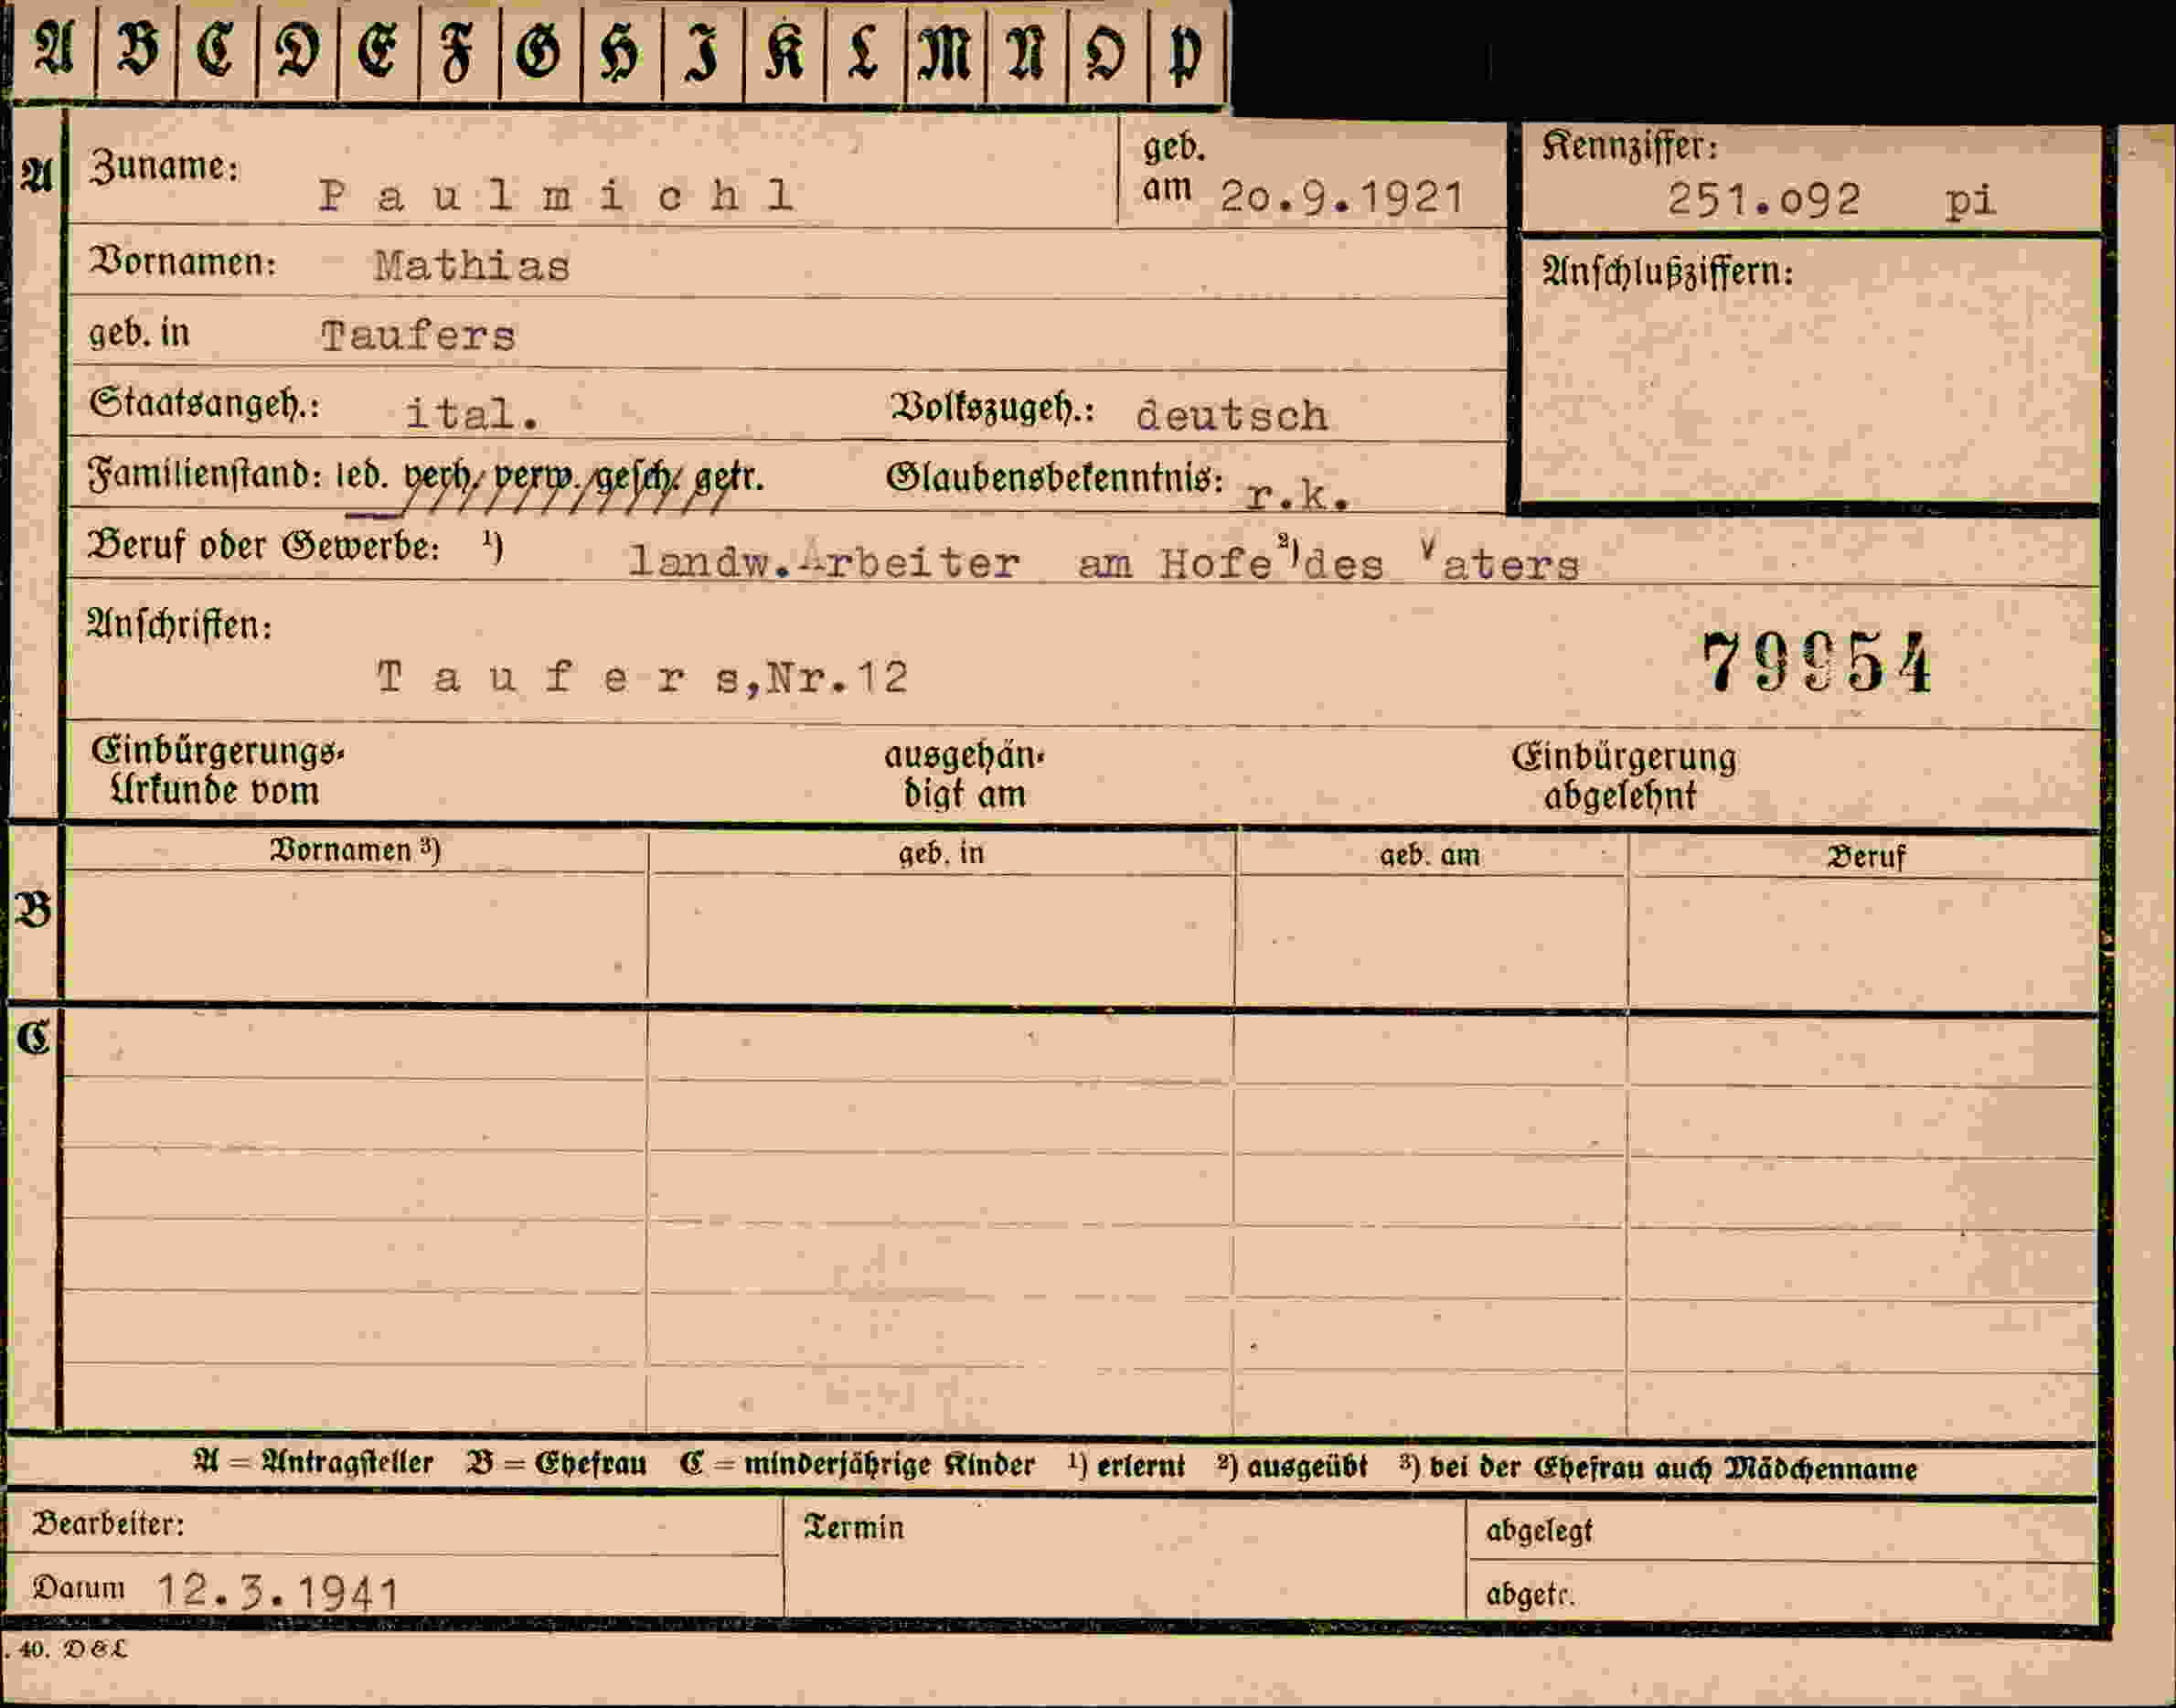 A B C D E F G H I K L M N O P
A Zuname: Paulmichl geb. am 2o.9.1921 Kennziffer: 251.o92 pi
Vornamen: Mathias Anschlußziffern:
geb. in Taufers
Staatsangeh.: ital. Volkszugeh.: deutsch
Familienstand: led. verh. verw. gesch. getr. Glaubensbekenntnis: r.k.
Beruf oder Gewerbe: ¹) landw.Arbeiter am Hofe ²) des Vaters
Anschriften:
Taufers,Nr.12 79954
Einbürgerungs- ausgehän- Einbürgerung
Urkunde vom digt am abgelehnt
Vornamen ³) geb. in geb. am Beruf
B
C
A = Antragsteller B = Ehefrau C = minderjährige Kinder ¹) erlernt ²) ausgeübt ³) bei der Ehefrau auch Mädchenname
Bearbeiter: Termin abgelegt
Datum 12.3.1941 abgetr.
. 40. D&L